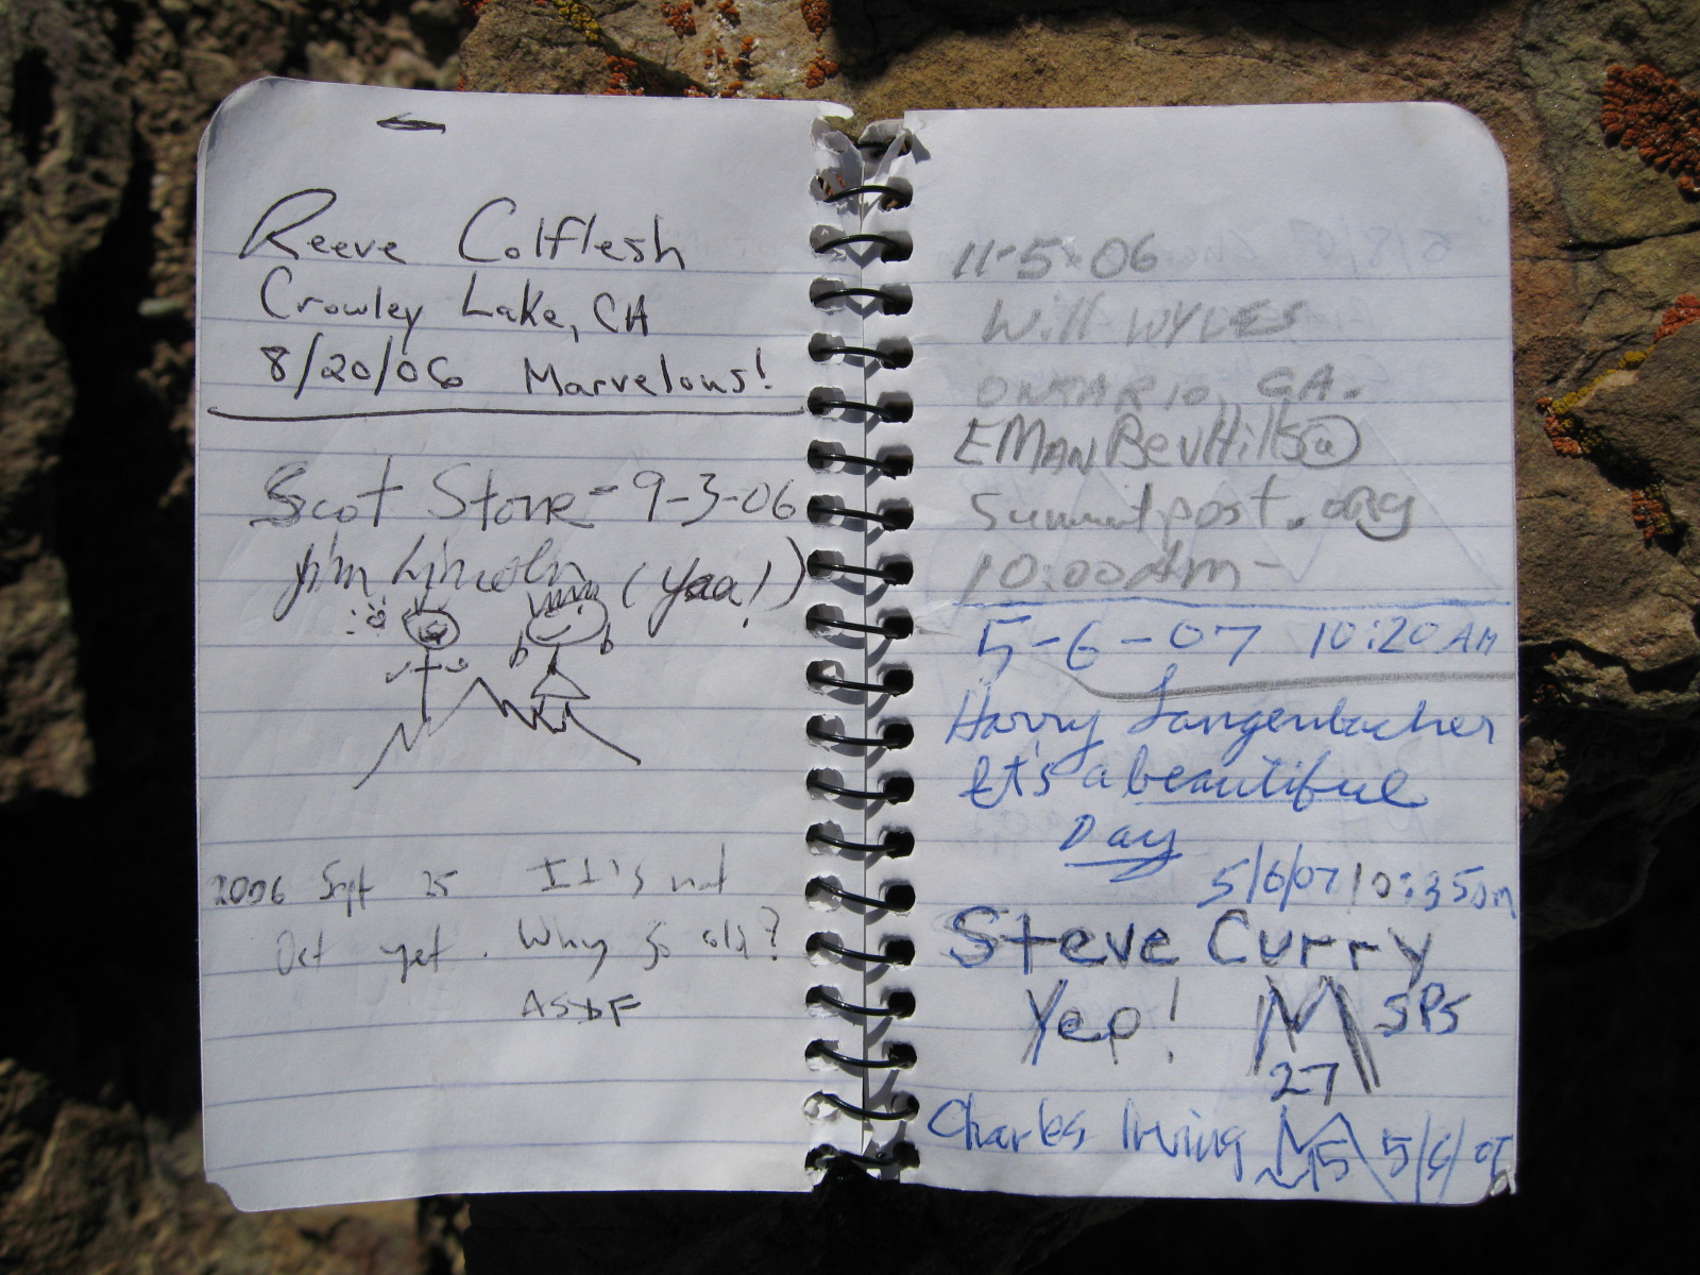 Reeve Colflesh
Crowley Lake, CA
8/20/06 Marvelous!
Scot Stone - 9-3-06
Jim Lincoln (Yaa!)
2006 Sept 25 It's not
Oct yet. Why so old?
ASDF
11-5-06
Will WYLES
ONTARIO, CA.
EMANBevHills@
Summitpost.org
10:00Am-
5-6-07 10:20 AM
Harry Langenbacher
It's a beautiful
Day
5/6/07 10:35am
Steve Curry
Yep! M SPS
27
Charles Irving M 15 5/6/07